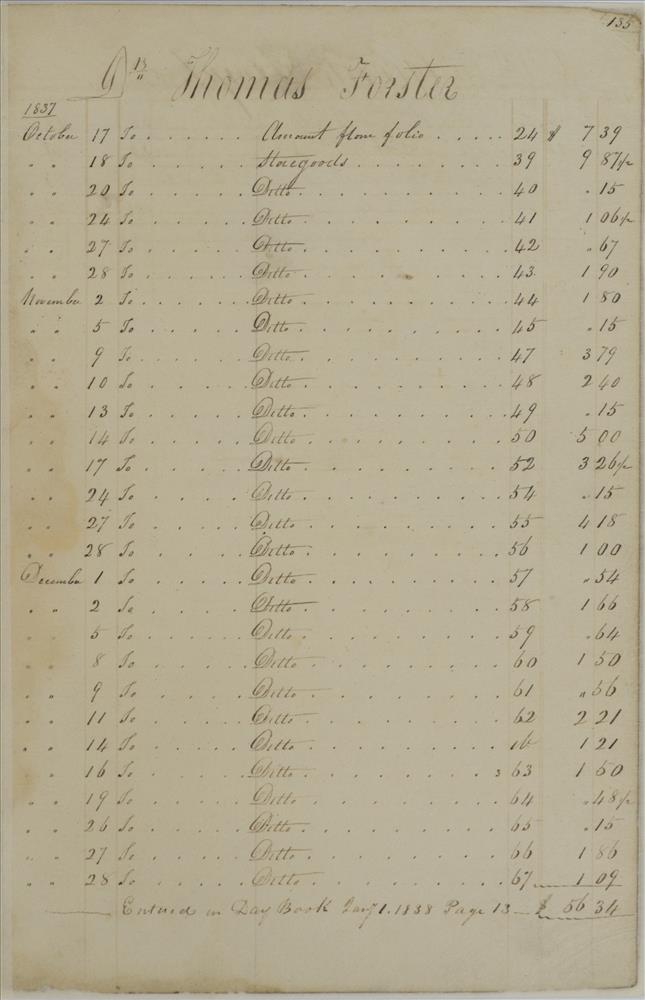 135
Dr Thomas Forster
1837
October 17 To . . . . . . Amount from folio . . . . . 24 $ 7 39
" " 18 To . . . . . . Storegoods . . . . . . . . 39 9 87½
" " 20 To . . . . . . Ditto . . . . . . . . . . 40 " 15
" " 24 To . . . . . . Ditto . . . . . . . . . . 41 1 06½
" " 27 To . . . . . . Ditto . . . . . . . . . . 42 " 67
" " 28 To . . . . . . Ditto . . . . . . . . . . 43 1 90
November 2 To . . . . . . Ditto . . . . . . . . . . 44 1 80
" " 5 To . . . . . . Ditto . . . . . . . . . . 45 " 15
" " 9 To . . . . . . Ditto . . . . . . . . . . 47 3 79
" " 10 To . . . . . . Ditto . . . . . . . . . . 48 2 40
" " 13 To . . . . . . Ditto . . . . . . . . . . 49 " 15
" " 14 To . . . . . . Ditto . . . . . . . . . . 50 5 00
" " 17 To . . . . . . Ditto . . . . . . . . . . 52 3 26½
" " 24 To . . . . . . Ditto . . . . . . . . . . 54 " 15
" " 27 To . . . . . . Ditto . . . . . . . . . . 55 4 18
" " 28 To . . . . . . Ditto . . . . . . . . . . 56 1 00
December 1 To . . . . . . Ditto . . . . . . . . . . 57 " 54
" " 2 To . . . . . . Ditto . . . . . . . . . . 58 1 66
" " 5 To . . . . . . Ditto . . . . . . . . . . 59 " 64
" " 8 To . . . . . . Ditto . . . . . . . . . . 60 1 50
" " 9 To . . . . . . Ditto . . . . . . . . . . 61 " 56
" " 11 To . . . . . . Ditto . . . . . . . . . . 62 2 21
" " 14 To . . . . . . Ditto . . . . . . . . . . ib 1 21
" " 16 To . . . . . . Ditto . . . . . . . . . . 63 1 50
" " 19 To . . . . . . Ditto . . . . . . . . . . 64 " 48½
" " 26 To . . . . . . Ditto . . . . . . . . . . 65 " 15
" " 27 To . . . . . . Ditto . . . . . . . . . . 66 1 86
" " 28 To . . . . . . Ditto . . . . . . . . . . 67 1 09
Entered in Day Book Jany 1. 1838 Page 13 — $ 56 34